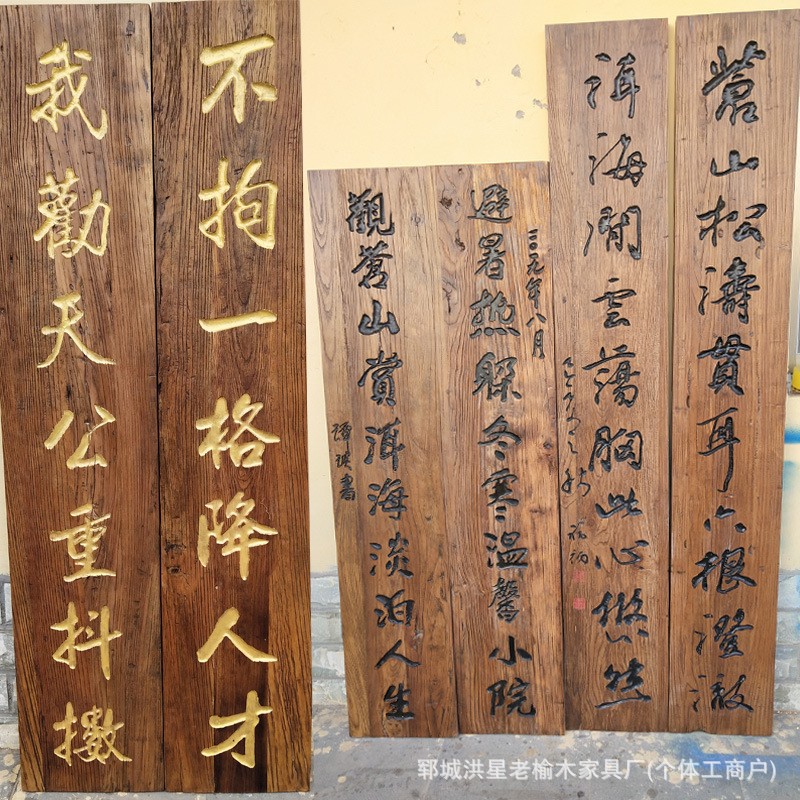 我勸天公重抖擻
不拘一格降人才
避暑热躲冬寒温馨小院
年八月
觀蒼山賞洱海淡泊人生
書
蒼山松濤貫耳六根澄澈
洱海閒雲蕩胸此心悠然
郓城洪星老榆木家具厂(个体工商户)